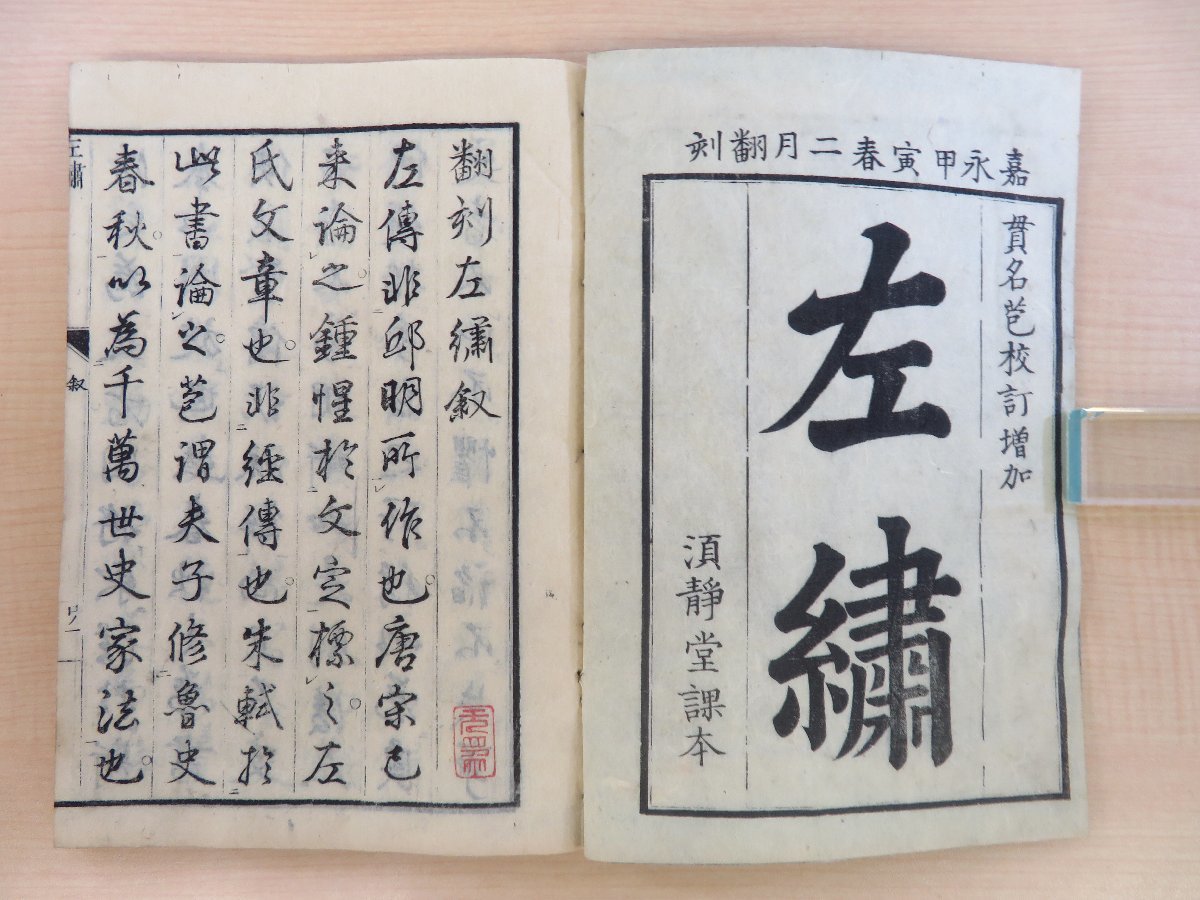 嘉永甲寅春二月翻刻
貫名苞校訂増加
左繡
湏靜堂課本
翻刻左繡叙
左傳非邱明所作也。唐宋已
来論之。鍾惺於文定標之左
氏文章也。非經傳也。朱軾於
此書論之。苞謂夫子修魯史
春秋以為千萬世史家法也。
左繡
叙